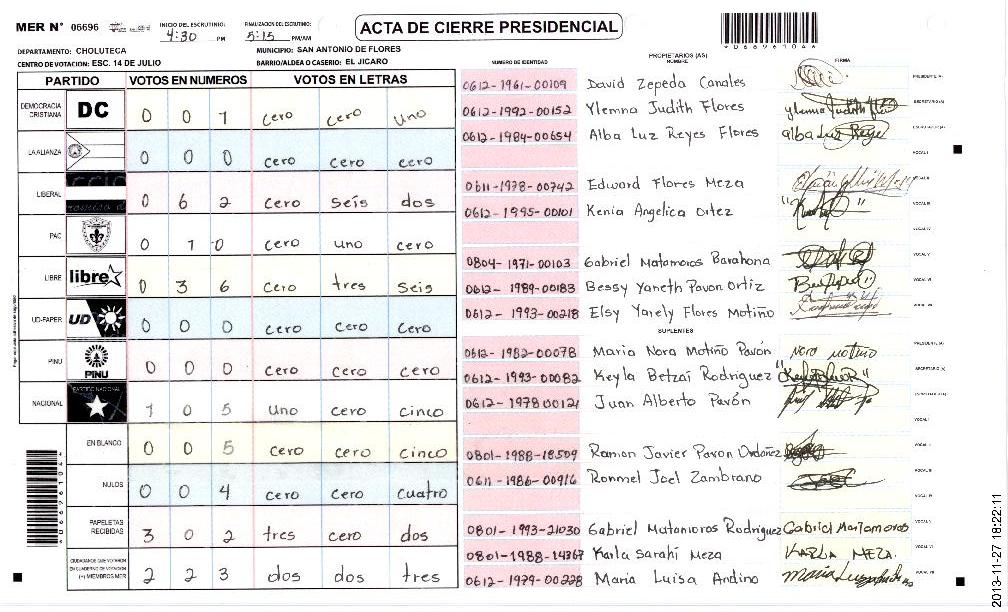 MER N° 06696
INICIO DEL ESCRUTINIO:
4:30 PM
FINALIZACION DEL ESCRUTINIO:
5:15 PM/AM
ACTA DE CIERRE PRESIDENCIAL
06696104
DEPARTAMENTO: CHOLUTECA
MUNICIPIO: SAN ANTONIO DE FLORES
CENTRO DE VOTACION: ESC. 14 DE JULIO
BARRIO/ALDEA O CASERIO: EL JICARO
PARTIDO VOTOS EN NUMEROS VOTOS EN LETRAS
DEMOCRACIA CRISTIANA DC 0 0 1 cero cero uno
LA ALIANZA 0 0 0 cero cero cero
LIBERAL 0 6 2 cero seis dos
PAC 0 1 0 cero uno cero
LIBRE libre 0 3 6 cero tres seis
UD-FAPER UD 0 0 0 cero cero cero
PINU PINU 0 0 0 cero cero cero
NACIONAL PARTIDO NACIONAL 1 0 5 uno cero cinco
EN BLANCO 0 0 5 cero cero cinco
NULOS 0 0 4 cero cero cuatro
PAPELETAS RECIBIDAS 3 0 2 tres cero dos
CIUDADANOS QUE VOTARON EN CUADERNO DE VOTACION (+) MIEMBROS MER 2 2 3 dos dos tres
NUMERO DE IDENTIDAD
PROPIETARIOS (AS)
NOMBRE
FIRMA
0612-1961-00109 David Zepeda Canales PRESIDENTE (A)
0612-1992-00152 Ylemna Judith Flores SECRETARIO (A)
0612-1984-00654 Alba Luz Reyes Flores alba Luz Reye ESCRUTADOR (A)
VOCAL I
0611-1978-00742 Edward Flores Meza VOCAL II
0612-1995-00101 Kenia Angelica Ortez VOCAL III
VOCAL IV
0804-1971-00103 Gabriel Matamoros Barahona VOCAL V
0612-1989-00183 Bessy Yaneth Pavon Ortiz VOCAL VI
0612-1993-00218 Elsy Yanely Flores Motiño VOCAL VII
SUPLENTES
0612-1982-00078 Maria Nora Motiño Pavón Nora motiño PRESIDENTE (A)
0612-1993-00082 Keyla Betzaí Rodriguez SECRETARIO (A)
0612-1978 00121 Juan Alberto Pavón ESCRUTADOR (A)
VOCAL I
0801-1988-18509 Ramon Javier Pavon Ordoñez VOCAL II
0611-1986-00916 Ronmel Joel Zambrano VOCAL III
VOCAL IV
0801-1993-21030 Gabriel Matamoros Rodriguez Gabriel Matamoros VOCAL V
0801-1988-14367 Karla Sarahí Meza KARLA MEZA. VOCAL VI
0612-1979-00228 Maria Luisa Andino VOCAL VII
06696104
2013-11-27 18:22:11